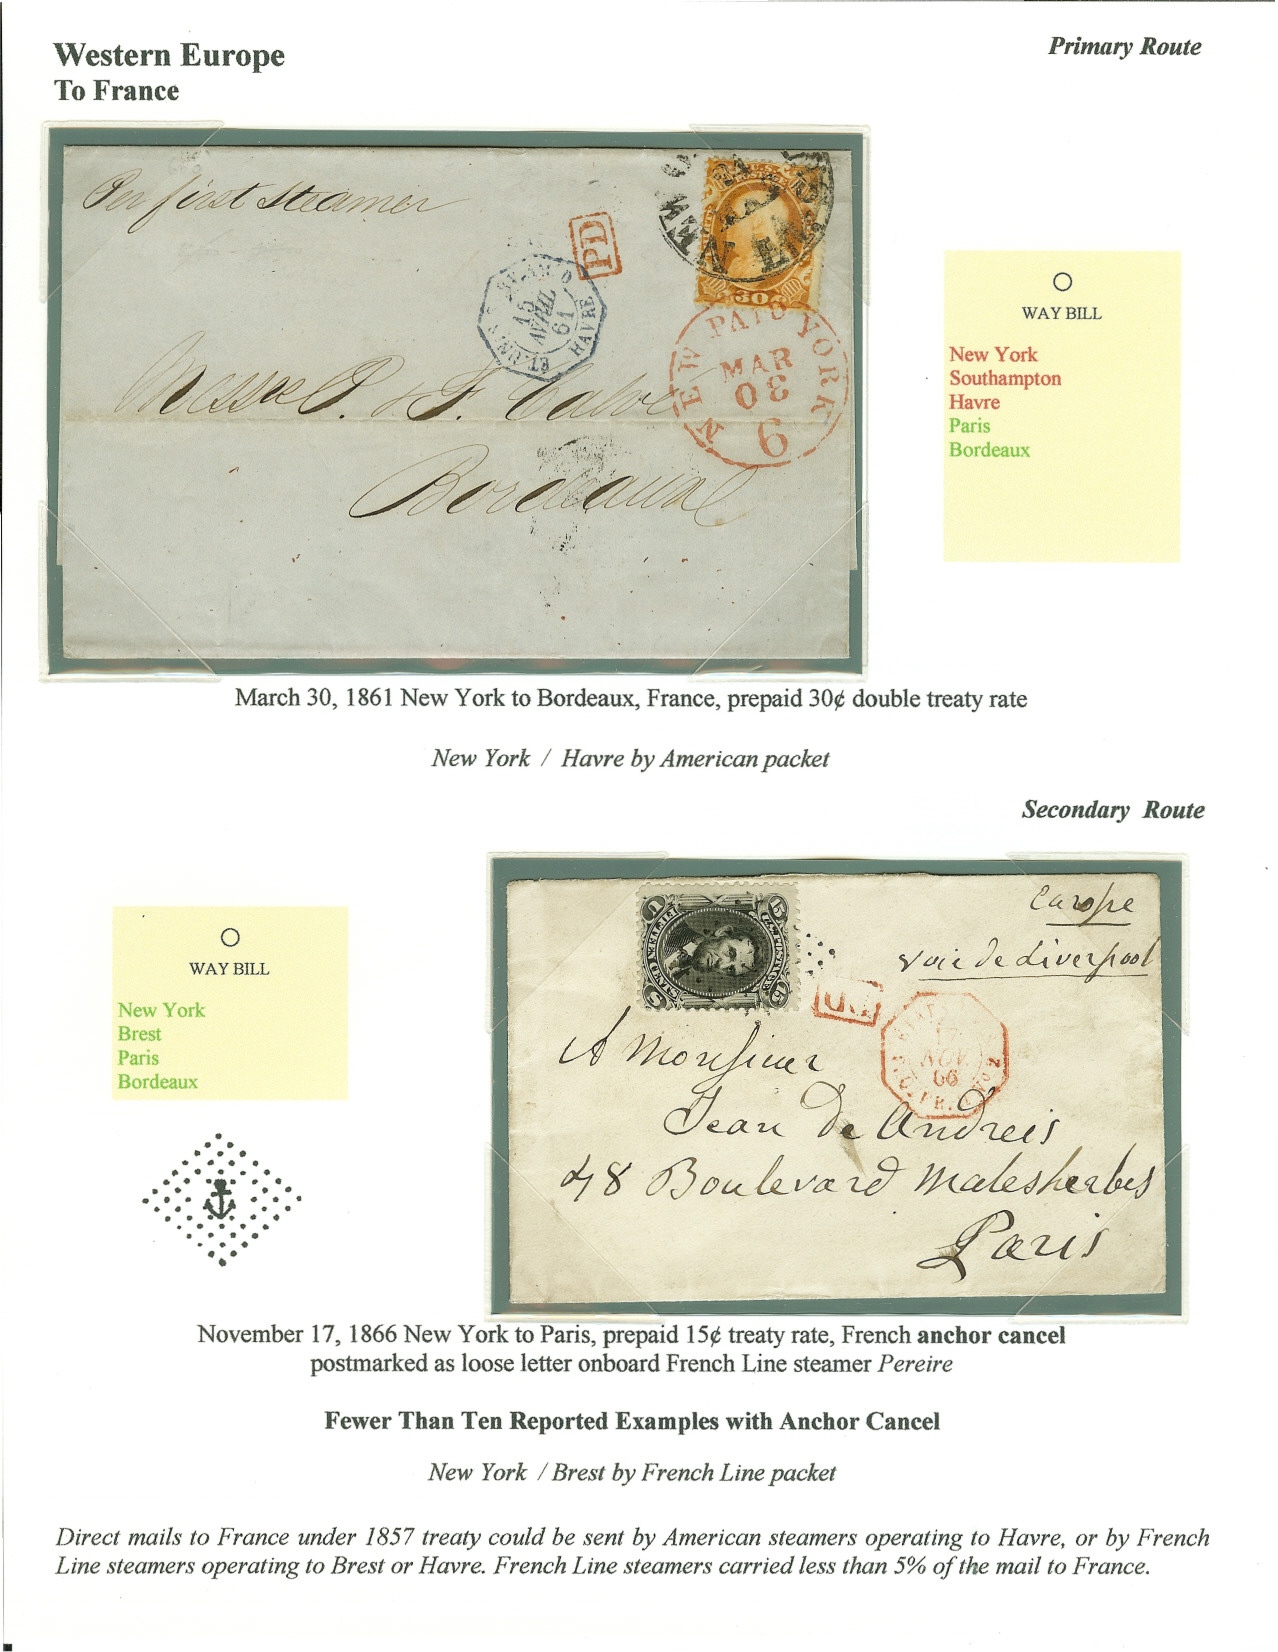 Western Europe
Primary Route
To France
Per first Steamer
PD
30
HAVRE
15
AVRIL
61
NEW PAID YORK
MAR
30
6
Bordeaux
WAY BILL
New York
Southampton
Havre
Paris
Bordeaux
March 30, 1861 New York to Bordeaux, France, prepaid 30¢ double treaty rate
New York / Havre by American packet
Secondary Route
WAY BILL
New York
Brest
Paris
Bordeaux
15
Europe
voie de Liverpool
PD
NOV.
66
A Monsieur
Jean De Andreis
48 Boulevard Malesherbes
Paris
November 17, 1866 New York to Paris, prepaid 15¢ treaty rate, French anchor cancel
postmarked as loose letter onboard French Line steamer Pereire
Fewer Than Ten Reported Examples with Anchor Cancel
New York / Brest by French Line packet
Direct mails to France under 1857 treaty could be sent by American steamers operating to Havre, or by French
Line steamers operating to Brest or Havre. French Line steamers carried less than 5% of the mail to France.